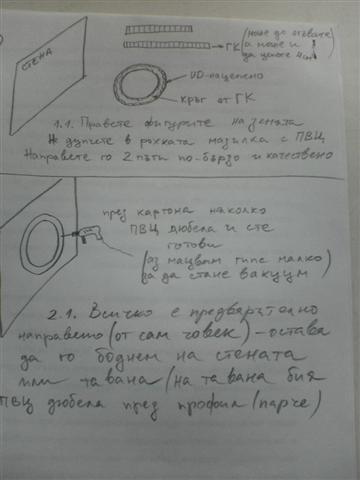 СТЕНА
ГК (може до огъвате
а може и
да цепите на
UD-нацепено
кръг от ГК
1.1. Правете фигурите на земята
Не дупчете в рохката мазилка с ПВЦ
Направете го 2 пъти по-бързо и качествено
през картона няколко
ПВЦ дюбела и сте
готови
(аз мацвам гипс малко)
за да стане вакуум
2.1. Всичко е предварително
направено (от сам човек) - остава
да го боднем на стената
или тавана (на тавана бия
ПВЦ дюбела през профил (парче)